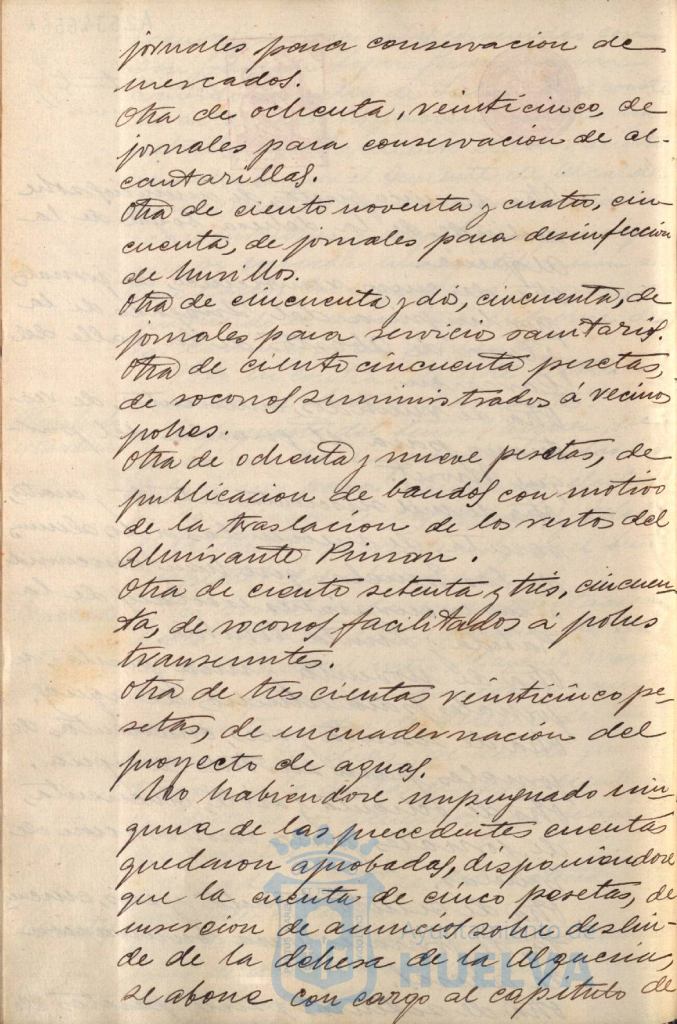 jornales para conservacion de
mercados.
Otra de ochenta, veinticinco, de
jornales para conservacion de al-
cantarillas.
Otra de ciento noventa y cuatro, cin
cuenta, de jornales para desinfeccion
de husillos.
Otra de cincuenta y dos, cincuenta, de
jornales para servicio sanitario.
Otra de ciento cincuenta pesetas,
de socorros suministrados á vecinos
pobres.
Otra de ochenta y nueve pesetas, de
publicacion de bandos con motivo
de la traslacion de los restos del
Almirante Pinzon.
Otra de ciento setenta y tres, cincuen-
ta, de socorros facilitados á pobres
transeuntes.
Otra de trescientas veinticinco pe-
setas, de encuadernacion del
proyecto de aguas.
No habiendose impugnado nin-
guna de las precedentes cuentas
quedaron aprobadas, disponiendose
que la cuenta de cinco pesetas, de
insercion de anuncios sobre deslin-
de de la dehesa de la Alqueria,
se abone con cargo al capitulo de
Ayuntamiento de
HUELVA